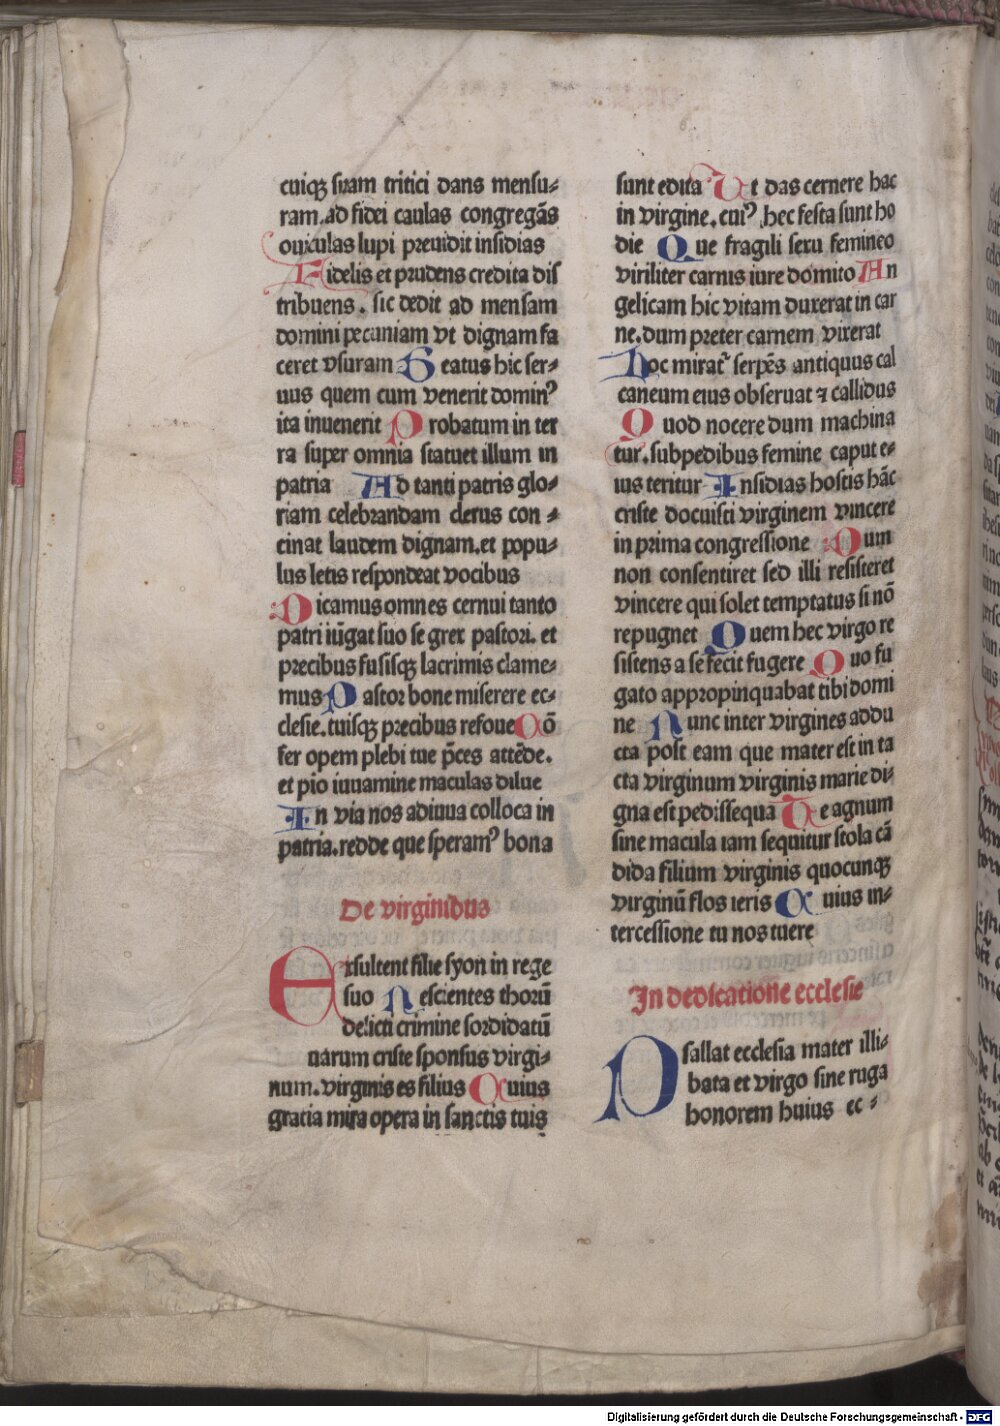 cuiqꝫ suam tritici dans mensu⸗
ram. ad fidei caulas congregãs
ouiculas lupi preuidit insidias
Fidelis et prudens credita dis
tribuens. sic dedit ad mensam
domini pecuniam vt dignam fa
ceret vsuram Beatus hic ser⸗
uus quem cum venerit dominꝰ
ita inuenerit Probatum in ter
ra super omnia statuet illum in
patria Ad tanti patris glo⸗
riam celebrandam clerus con⸗
cinat laudem dignam. et popu⸗
lus letis respondeat vocibus
Dicamus omnes cernui tanto
patri iũgat suo se grex pastori. et
precibus fusisqꝫ lacrimis clame⸗
mus Pastor bone miserere ec⸗
clesie. tuisqꝫ precibus refoue Cõ
fer opem plebi tue p̃ces attẽde.
et pio iuuamine maculas dilue
In via nos adiuua colloca in
patria. redde que speramꝰ bona
De virginibus
Exsultent filie syon in rege
suo Nescientes thorũ
delicti crimine sordidatũ
uarum criste sponsus virgi⸗
num. virginis es filius Cuius
gratia mira opera in sanctis tuis
sunt edita Vt das cernere hac
in virgine. cuiꝰ hec festa sunt ho
die Que fragili sexu femineo
viriliter carnis iure domito An
gelicam hic vitam duxerat in car
ne. dum preter carnem vixerat
Hoc mirat᷑ serpẽs antiquus cal
caneum eius obseruat ⁊ callidus
Quod nocere dum machina
tur. sub pedibus femine caput e⸗
ius teritur Insidias hostis hãc
criste docuisti virginem vincere
in prima congressione Dum
non consentiret sed illi resisteret
vincere qui solet temptatus si nõ
repugnet Quem hec virgo re
sistens a se fecit fugere Quo fu
gato appropinquabat tibi domi
ne Nunc inter virgines addu
cta post eam que mater est in ta
cta virginum virginis marie di⸗
gna est pedissequa Te agnum
sine macula iam sequitur stola cã
dida filium virginis quocunqꝫ
virginũ flos ieris Cuius in⸗
tercessione tu nos tuere
In dedicatione ecclesie
Psallat ecclesia mater illi⸗
bata et virgo sine ruga
honorem huius ec⸗
Digitalisierung gefördert durch die Deutsche Forschungsgemeinschaft - DFG